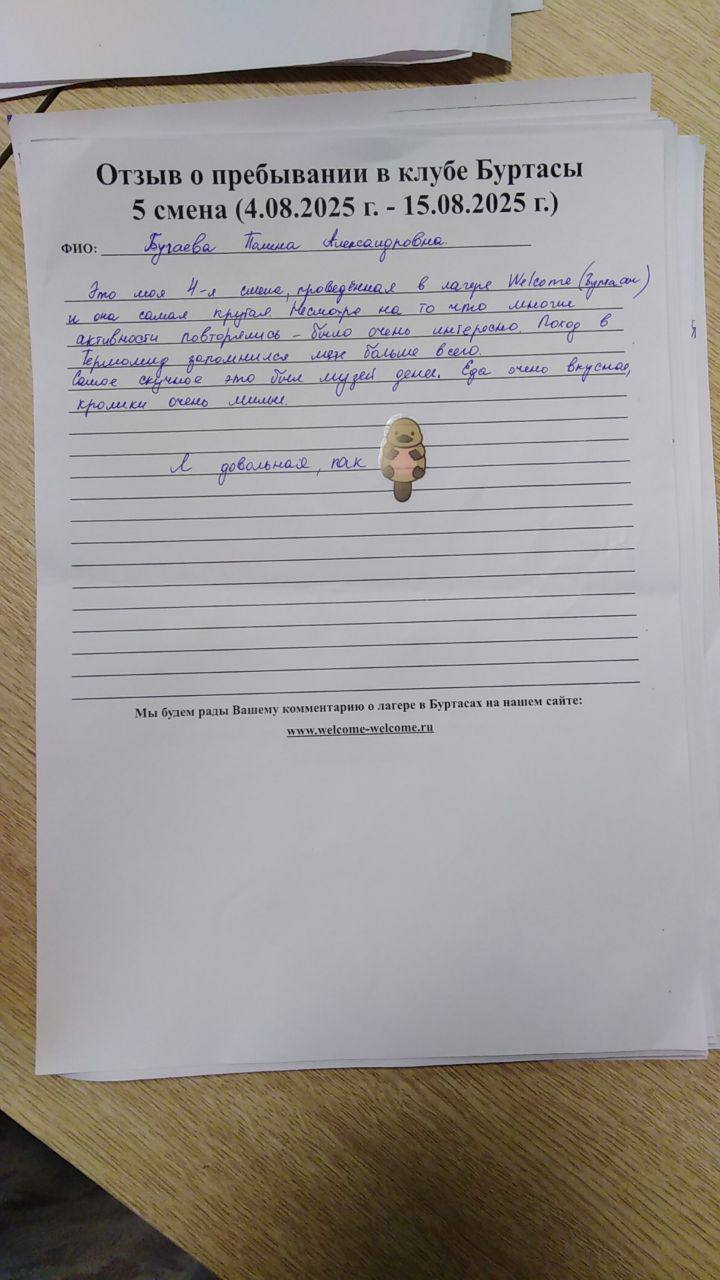 Отзыв о пребывании в клубе Буртасы
5 смена (4.08.2025 г. - 15.08.2025 г.)
ФИО: Бугаева Полина Александровна.
Это моя 4-я смена, проведённая в лагере Welcome (Буртасы)
и она самая крутая. Несмотря на то что многие
активности повторялись - было очень интересно. Поход в
Термолэнд запомнился мне больше всего.
Самое скучное это был музей денег. Еда очень вкусная,
кролики очень милые.
Я довольная, как
Мы будем рады Вашему комментарию о лагере в Буртасах на нашем сайте:
www.welcome-welcome.ru